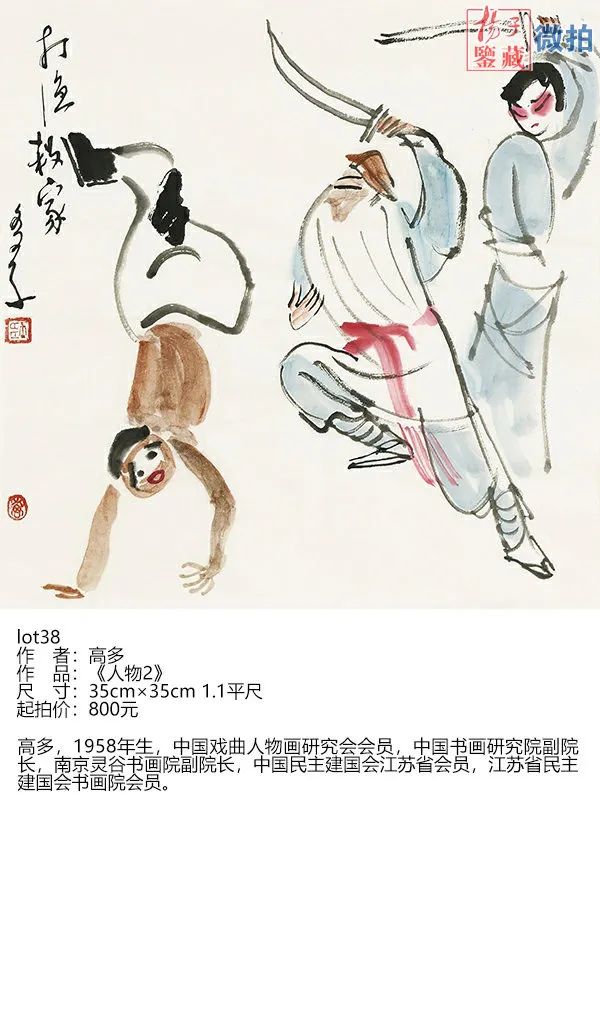 打渔杀家
扬子
鉴藏
微拍
lot38
作 者：高多
作 品：《人物2》
尺 寸：35cm×35cm 1.1平尺
起拍价：800元
高多，1958年生，中国戏曲人物画研究会会员，中国书画研究院副院
长，南京灵谷书画院副院长，中国民主建国会江苏省会员，江苏省民主
建国会书画院会员。